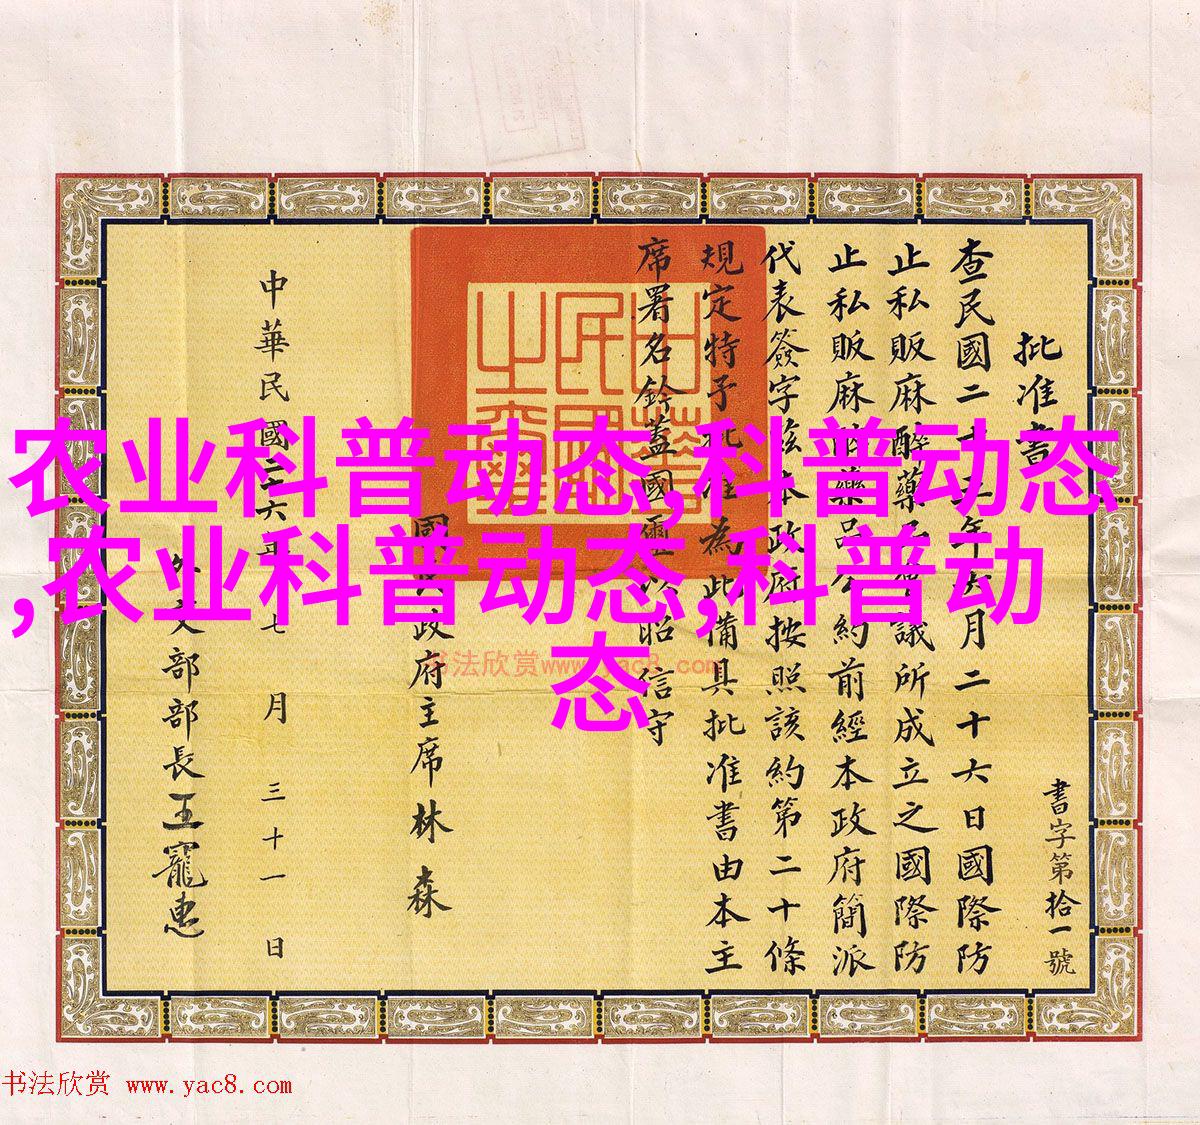 書字第拾一號
批准書
查民國二十五年六月二十六日國際防
止私販麻醉藥品會議所成立之國際防
止私販麻醉藥品公約前經本政府簡派
代表簽字茲本政府按照該約第二十條
規定特予批准為此備具批准書由本主
席署名鈐蓋國璽以昭信守
中華民國之璽
國民政府主席林森
中華民國二十六年七月三十一日
外交部部長王寵惠
农业科普动态,科普动态
,农业科普动态,科普动
态
书法欣赏 www.yac8.com
书法欣赏 www.yac8.com